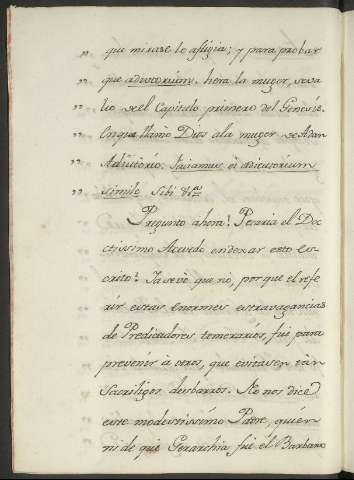 " que mirase le afligia; y para probar
" que adiutorium, hera la muger, se va
" lio de el Capitulo primero del Genesis.
" En que llamo Dios a la muger de Adan
" Adiutorio. Faciamus ei adiutorium
" simile sibi &ca
Pregunto ahora? Peraria el Doc
ctissimo Acevedo en dexar esto es
crito? Ia se vè que no, por que el refe
rir estas enormes extravagancias
de Predicadores temerarios, fuè para
prevenir à otros, que evitasen tàn
Sacriligos desbarros. No nos dice
este modestissimo Padre, quièn
ni de què Gerarchia fuè el Barbaro